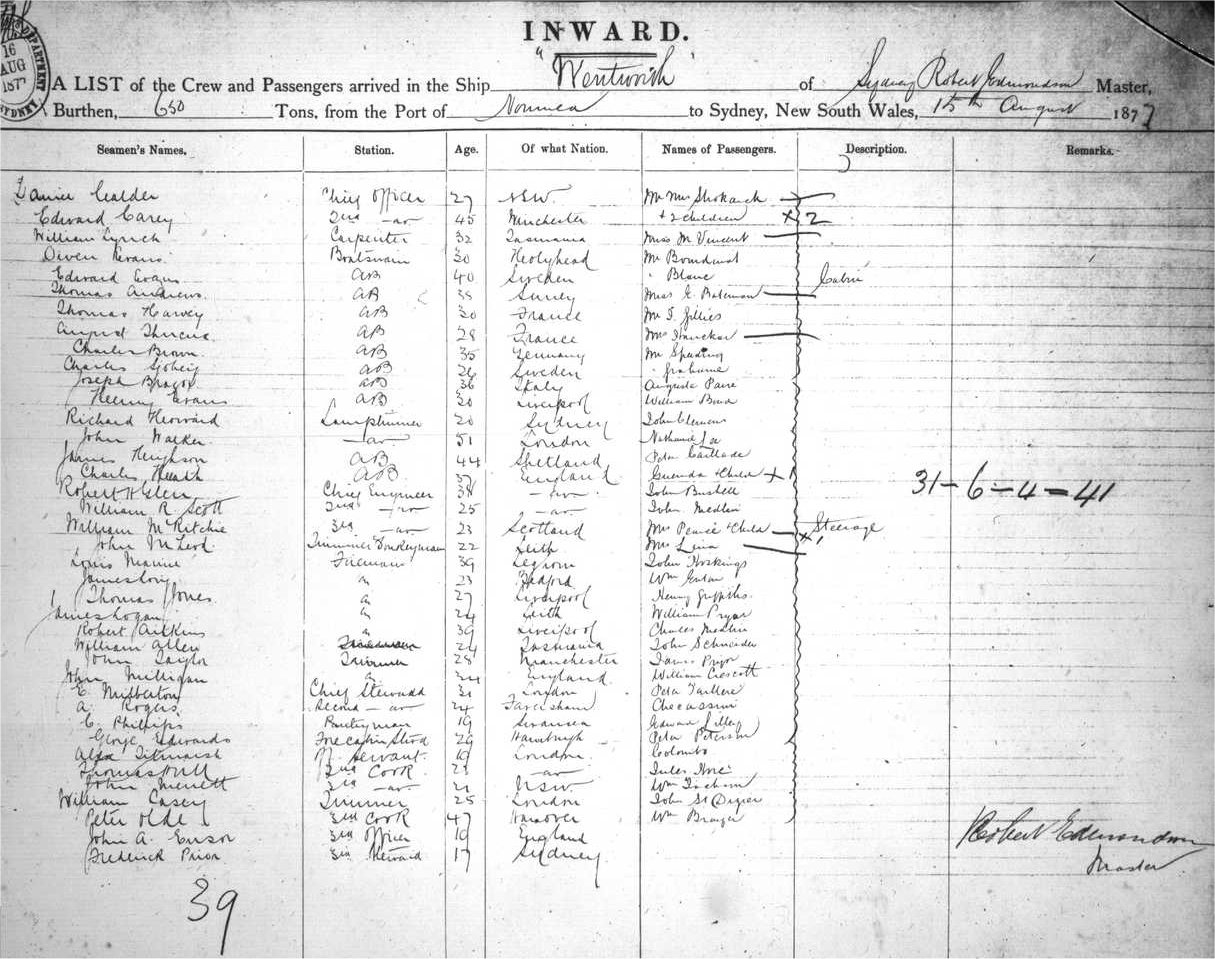 INWARD.
16
AUG
1877
DEPARTMENT
SYDNEY
A LIST of the Crew and Passengers arrived in the Ship "Wentworth" of Sydney Robert Edmondson Master,
Burthen, 650 Tons, from the Port of Noumea to Sydney, New South Wales, 15th August 1877
Seamen's Names. Station. Age. Of what Nation. Names of Passengers. Description. Remarks.
Daniel Calder Chief Officer 27 NSW. Mr Mrs
Edward Carey 2nd do 45 Winchester + 2 children x 2
William Lynch Carpenter 32 Tasmania Miss M Vincent
Owen Evans Boatswain 30 Holyhead Mr
Edward AB 40 Sweden " Blanc Cabin
Thomas Andrews. AB 38 Surrey Miss E. Bateman
Thomas Harvey AB 30 France Mr T. Gillies
August AB 28 France Mrs
Charles Brown. AB 35 Germany Mr Speeding
Charles AB 26 Sweden " Grahame
Joseph AB 36 Italy Auguste
Henry Evans AB 30 Liverpool William Bond
Richard Lamptrimmer 20 Sydney John Clemens
John Walker. do 51 London
James AB 44 Shetland Peter
Charles Heath AB 37 England + Child x 1
Robert H Glen Chief Engineer 38 do John
31-6-4=41
William R. Scott 2nd do 25 do John Medlin
William McRitchie 3rd do 23 Scotland Mrs Pearce + Child x 1 Steerage
John McLeod Trimmer Donkeyman 22 Leith Mrs
Louis Fireman 39 John Hoskings
James " 23 Bedford Wm
Thomas Jones " 27 Liverpool Henry Griffiths
James Logan " 24 Leith William Pryor
Robert Aitkins " 39 Liverpool Charles Medlin
William Allen 24 Tasmania John Schneider
John Taylor Trimmer 28 Manchester James Pryor
John Milligan " 34 England William
E. Milberton Chief Steward 31 London Peter
A. Rogers Second do 24 Faversham Checassini
C. Phillips Pantryman 19 Swansea Edward Lilley
George Edwards Forecabin Stwd 29 Hamburgh Peter Peterson
Alfd Titmarsh Servant 19 London Colombo
Thomas 2nd Cook 23 do Jules
John Merrett 3rd do 21 NSW. Wm
William Casey Trimmer 25 London John St
Peter Olde 3rd Cook 47 Hanover Wm
John A. 3rd Officer 19 England
Frederick Prior 3rd Steward 17 Sydney
Robert Edmondson
Master
39